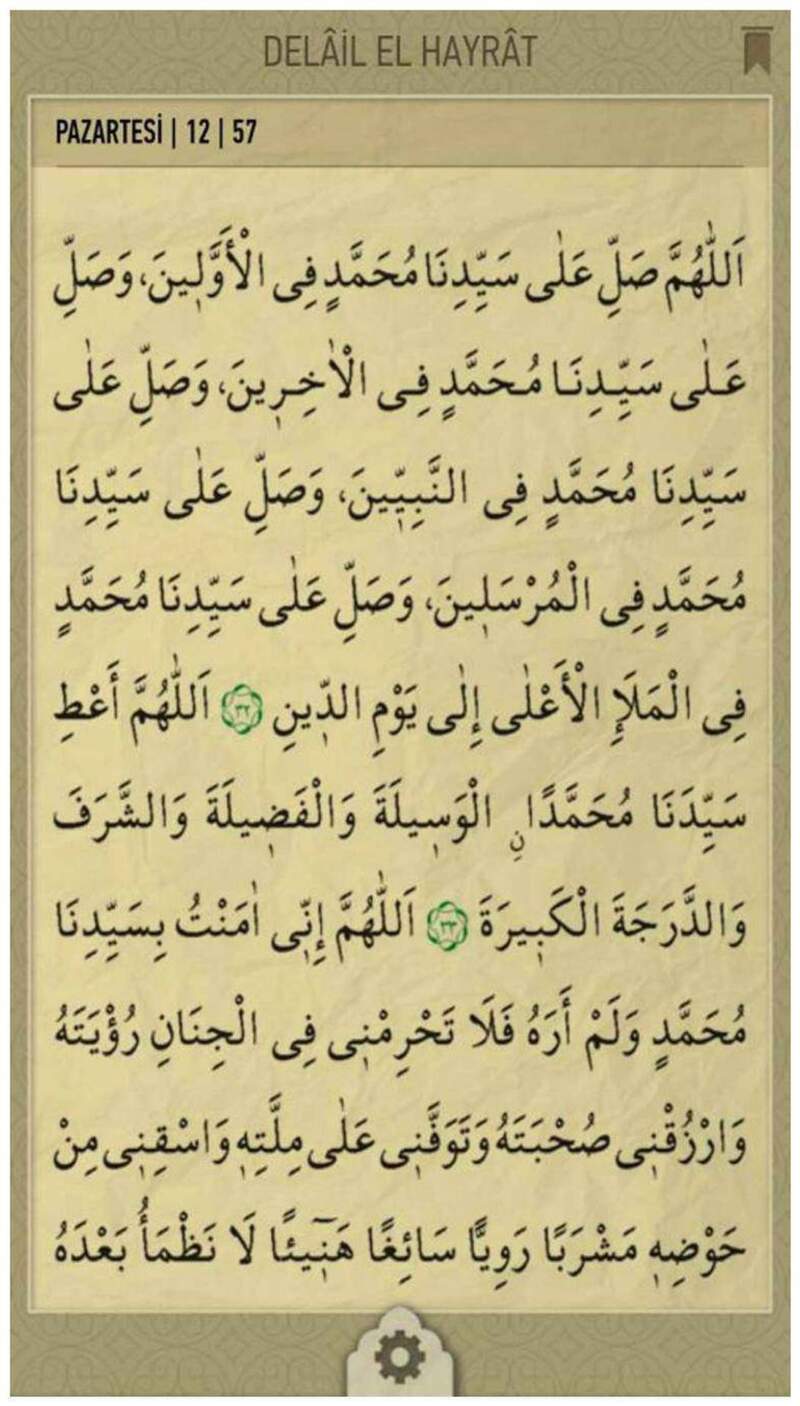 DELÂİL EL HAYRÂT
PAZARTESİ | 12 | 57
اَللّٰهُمَّ صَلِّ عَلٰى سَيِّدِنَا مُحَمَّدٍ فِى الْأَوَّلٖينَ، وَصَلِّ
عَلٰى سَيِّدِنَا مُحَمَّدٍ فِى الْاٰخِرٖينَ، وَصَلِّ عَلٰى
سَيِّدِنَا مُحَمَّدٍ فِى النَّبِيّٖينَ، وَصَلِّ عَلٰى سَيِّدِنَا
مُحَمَّدٍ فِى الْمُرْسَلٖينَ، وَصَلِّ عَلٰى سَيِّدِنَا مُحَمَّدٍ
فِى الْمَلَإِ الْأَعْلٰى إِلٰى يَوْمِ الدّٖينِ ٣٢ اَللّٰهُمَّ أَعْطِ
سَيِّدَنَا مُحَمَّدًاۨ الْوَسٖيلَةَ وَالْفَضٖيلَةَ وَالشَّرَفَ
وَالدَّرَجَةَ الْكَبٖيرَةَ ٣٣ اَللّٰهُمَّ إِنّٖى اٰمَنْتُ بِسَيِّدِنَا
مُحَمَّدٍ وَلَمْ أَرَهُ فَلَا تَحْرِمْنٖى فِى الْجِنَانِ رُؤْيَتَهُ
وَارْزُقْنٖى صُحْبَتَهُ وَتَوَفَّنٖى عَلٰى مِلَّتِهٖ وَاسْقِنٖى مِنْ
حَوْضِهٖ مَشْرَبًا رَوِيًّا سَائِغًا هَنٖٓيئًا لَا نَظْمَأُ بَعْدَهُ